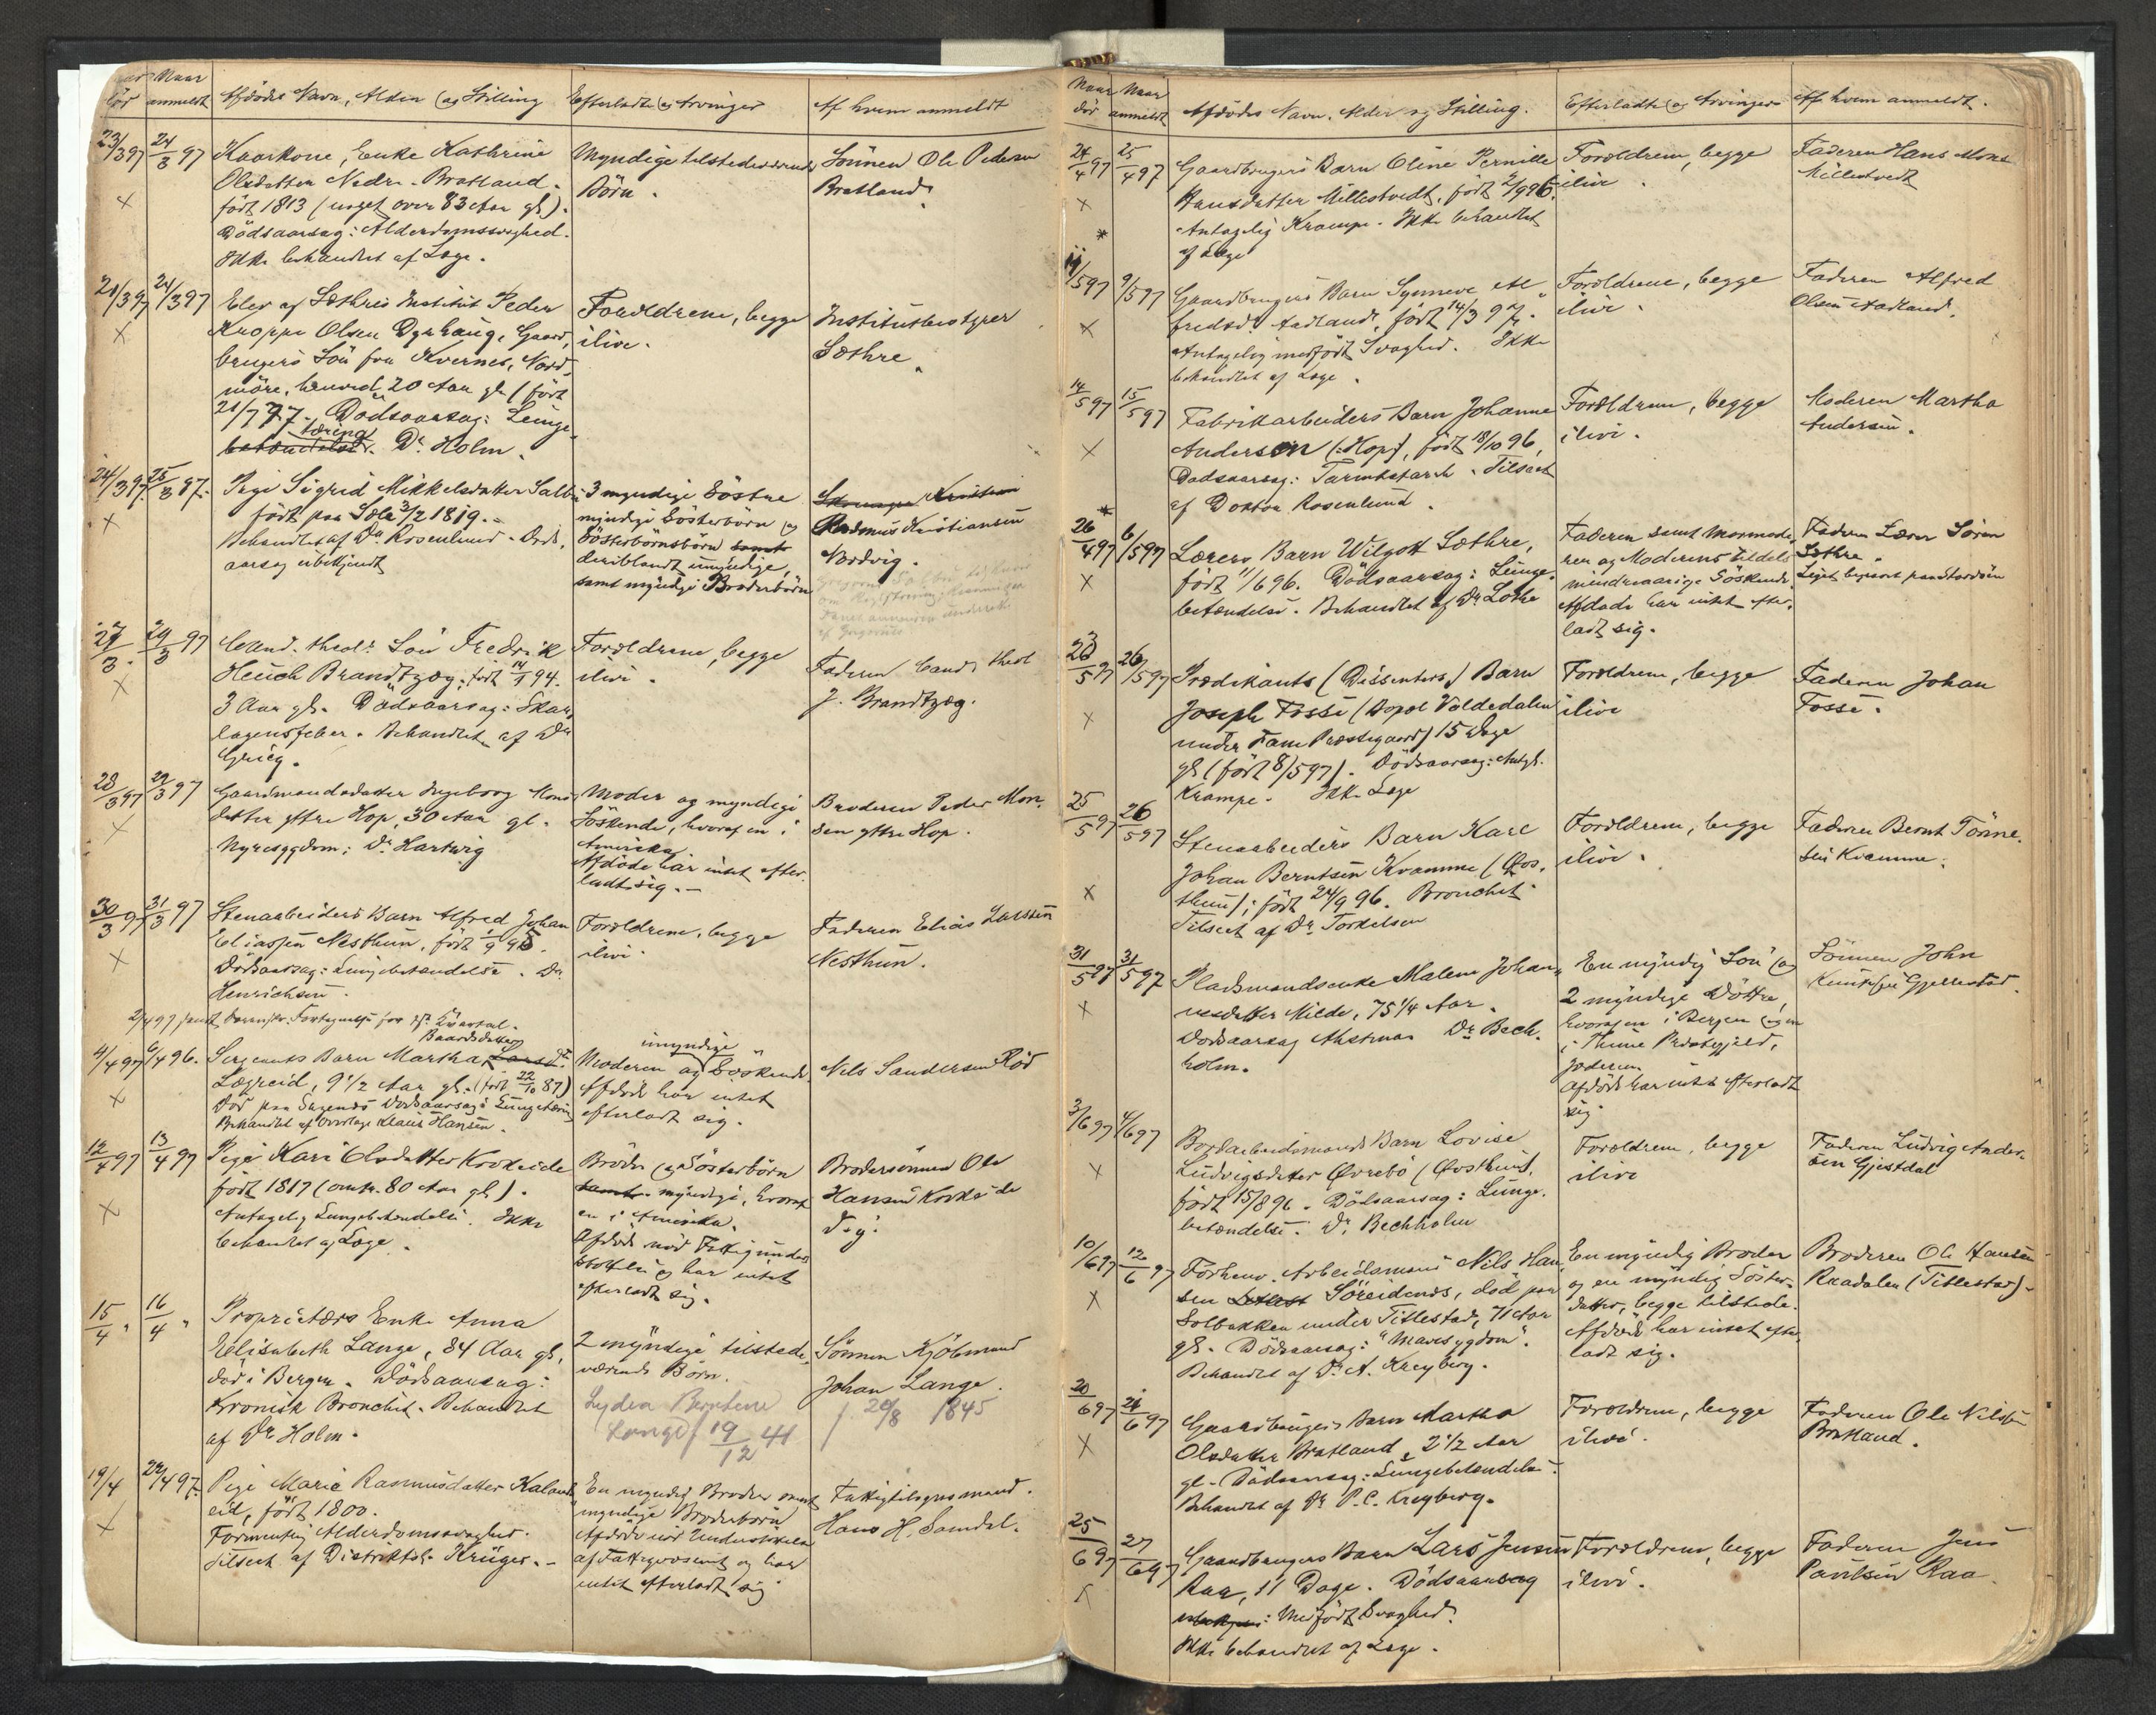 Naar
dör anmeldt Afdödes Navn, Alder og Stilling Efterladte og Arvinger Af hvem anmeldt
23/3 97 24/3 97 Kaarkone, Enke Kathrine
Olsdatter Nedre-Bratland.
født 1813 (noget over 83 Aar gl).
Dödsaarsag: Alderdomssvaghed.
Ikke behandlet af Læge.
Myndige tilstedeværende
Börn.
Sönnen Ole Pedersen
Bratland.
21/3 97 24/3 97 Elev af Sæthres Institut Peder
Kroppe Olsen Dyrhaug, Gaard-
brugers Sön fra Kvernes, Nord-
möre, henved 20 Aar gl (født
21/7 77. Dödsaarsag: Lunge-
tæring
betændelse. Dr Holm.
Forældrene, begge
ilive.
Institutbestyrer
Sæthre.
24/3 97. 25/3 97. Pige Sigrid Mikkelsdatter Salbu
født paa 3/2 1819.
Behandlet af Dr Rosenlund. Döds-
aarsag ubekjendt
3 myndige Söstre
myndige Sösterbörn og
Sösterbörnsbörn samt
deriblandt umyndige,
samt myndige Broderbörn
Rasmus Kristiansen
Nordvig.
27/3. 29/3 97 Cand. theol. Sön Fredrik
Heuch Brandtzæg, født 14/1 94.
3 Aar gl. Dödsaarsag: Skar-
lagensfeber. Behandlet af Dr
Grieg.
Forældrene, begge
ilive.
Faderen Cand. theol
J. Brandtzæg.
28/3 97 29/3 97 Gaardmandsdatter Ingeborg Mons-
datter ytre Hop, 30 Aar gl.
Nyresygdom; Dr Hartwig
Moder og myndige
Söskende, hvoraf en i
Amerika,
Afdöde har intet efter-
ladt sig.
Broderen Peder Mon-
sen ytre Hop.
30/3 97 31/3 97 Stenarbeiders Barn Alfred Johan
Eliassen Nesthun, født
Dödsaarsag: Lungebetændelse. Dr
Henrichsen.
Forældrene, begge
ilive.
Faderen Elias Larssen
Nesthun.
2/4 97 sendt Fortegnelse for Kvartal.
4/4 97 6/4 96. Baardsdatter
Sergeants Barn Martha Lars Dt
Lægreid, 9 1/2 Aar gl. (født 22/10 87)
Död paa Dödsaarsag: Lungetæring
Behandlet af Overlæge Klaus Hansen.
umyndige
Moderen og Söskende.
Afdöde har intet
efterladt sig.
Nils Sandersen Röd
12/4 97 13/4 97 Pige Kari Olsdatter Krokeide
født 1817 (omtr. 80 Aar gl).
Antagelig Lungebetændelse. Ikke
behandlet af Læge.
Broder og Sösterbörn
samt myndige, hvoraf
en i Amerika.
Afdöde nöd Fattigunder-
stöttelse og har intet
efterladt sig.
Brodersönnen Ole
Hansen Krokeide
15/4 " 16/4 " Proprietærs Enke Anna
Elisabeth Lange, 84 Aar gl.
död i Bergen. Dödsaarsag:
Kronisk Bronchit. Behandlet
af Dr Holm.
2 myndige tilstede-
værende Börn.
Lydia Berntine
Lange f 19/12 41
Sönnen Kjöbmand
Johan Lange.
f. 20/8 1845
19/4 24/4 97 Pige Marie Rasmusdatter Kaland-
eid, født 1800.
Formentlig Alderdomssvaghed.
Tilseet af Distriktsl. Krüger.
En myndig Broder samt
myndige Broderbörn
Afdöde nöd Understöttelse
af Fattigvæsenet og har
intet efterladt sig
Fattigtilsynsmand.
Hans H. Samdal.
Naar Naar
död anmeldt Afdödes Navn, Alder og Stilling. Efterladte og Arvinger Af hvem anmeldt.
24/4 97 25/4 97 Gaardbrugers Barn Oline Pernille
Hansdatter Millestvedt, født 2/9 96.
Antagelig Krampe. Ikke behandlet
af Læge
Forældrene, begge
ilive.
Faderen Hans Mons
Millestvedt
/5 97 9/5 97 Gaardbrugers Barn Synneve Al-
fredsdr Aadland, født 14/3 97.
Antagelig medfødt Svaghed. Ikke
behandlet af Læge.
Forældrene, begge
ilive.
Faderen Alfred
Olsen Aadland.
14/5 97 15/5 97 Fabrikarbeiders Barn Johanne
Andersen (Hop), født 18/10 96,
Dödsaarsag: Tarmkatarrh. Tilseet
af Doktor Rosenlund.
Forældrene, begge
ilive.
Moderen Martha
Andersen.
26/4 97 6/5 97 Lærers Barn Wilgott Sæthre,
født 11/6 96. Dödsaarsag: Lunge-
betændelse. Behandlet af Dr Lothe
Faderen samt Mormode-
ren og Moderens tildels
mindreaarige Söskende.
Afdöde har intet efter-
ladt sig.
Faderen Lærer Sören
Sæthre.
Liget begravet paa Stordöen
23/5 97 26/5 97 Prædikants (Dissenters) Barn
Joseph Fosse (Voldedalen
under Fane Præstegaard) 15 Dage
gl (født 8/5 97). Dödsaarsag: Antgl.
Krampe. Ikke Læge
Forældrene, begge
ilive
Faderen Johan
Fosse.
25/5 97 26/5 97 Stenarbeiders Barn Karl
Johan Berntsen Kvamme (Øvs-
thun); født 24/9 96. Bronchit.
Tilseet af Dr Torkelsen
Forældrene, begge
ilive.
Faderen Bernt Tönne-
sen Kvamme.
31/5 97 31/5 97 Pladsmandsenke Malene Johan-
nesdatter Milde, 75 1/4 Aar.
Dödsaarsag Asthma Dr Bech-
holm.
En myndig Sön og
2 myndige Döttre,
hvoraf en i Bergen og en
i Thime Præstegjeld,
Jæderen.
Afdöde har intet efterladt
sig.
Sönnen John
Knutsen Gjellestad.
3/6 97 4/6 97 Bordarbeidsmands Barn Lovise
Ludvigsdatter Øvrebö (Øvsthun),
født 15/8 96. Dödsaarsag: Lunge-
betændelse. Dr Bechholm
Forældrene, begge
ilive
Faderen Ludvig Ander-
sen Gjestdal
10/6 97 12/6 97 Forhenv. Arbeidsmand Nils Han-
sen Söreidends, död paa
Solbakken under Titlestad, 71 Aar
gl. Dödsaarsag: "Mavesygdom".
Behandlet af Dr A. Kreyberg.
En myndig Broder
og en myndig Söster-
datter, begge tilstede.
Afdöde har intet efter-
ladt sig.
Broderen Ole Hansen
Raadalen (Titlestad).
20/6 97 21/6 97 Gaardbrugers Barn Martha
Olsdatter Bratland, 2 1/2 Aar
gl. Dödsaarsag: Lungebetændelse.
Behandlet af Dr P. C. Kreyberg.
Forældrene, begge
ilive.
Faderen Ole Nilsen
Bratland.
25/6 97 27/6 97 Gaardbrugers Barn Lars Jensen
Raa, 11 Dage. Dödsaarsag
: Medfödt Svaghed.
Ikke behandlet af Læge.
Forældrene, begge
ilive.
Faderen Jens
Paulsen Raa